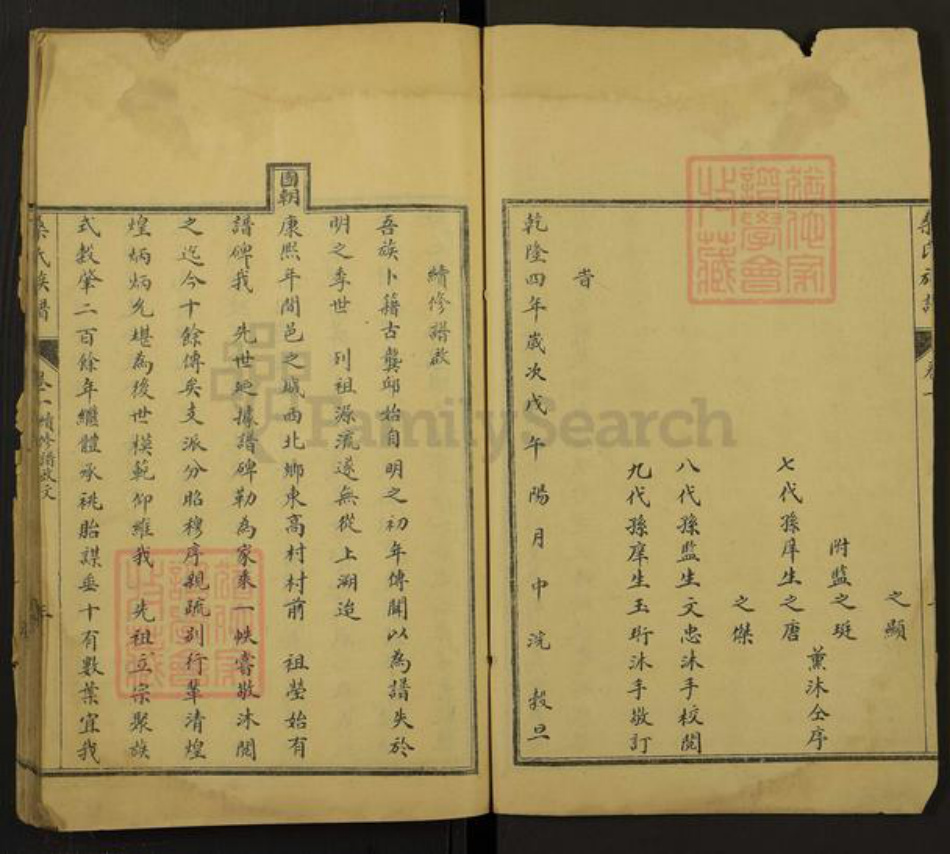 之顯
附監之珽
七代孫庠生之唐
薰沐仝序
之傑
八代孫監生文忠沐手校閱
九代孫庠生玉珩沐手敬訂
旹
乾隆四年歲次戊午陽月中浣 穀旦
續修譜啟
吾族卜籍古龔邱始自明之初年傳聞以為譜失於
明之季世 列祖源流遂無從上溯迨
國朝
康熙年間邑之城西北鄉東高村村前 祖塋始有
譜碑我 先世地據譜碑勒為家乘一帙嘗敬沐閱
之迄今十餘傳矣支派分昭穆序親疏別行輩清煌
煌炳炳允堪為後世模範仰維我 先祖立宗聚族
式穀肇二百餘年繼體承祧貽謀垂十有數葉宜我
氏族譜
卷一 續修譜啟文
FamilySearch